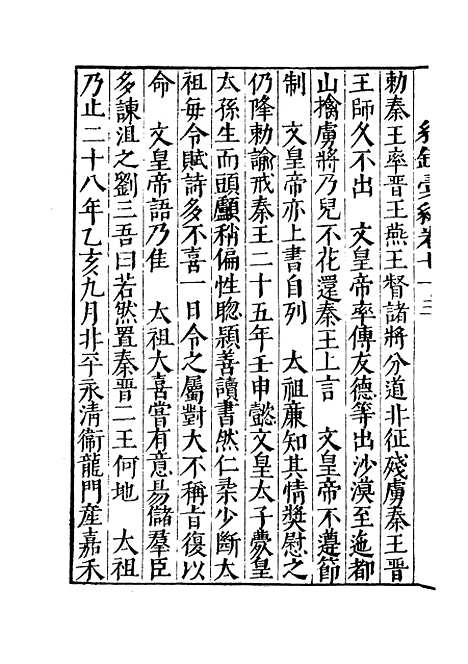 勑秦王率晋王燕王督諸將分道北征殘虜秦王晋
王師久不出　文皇帝率傅友德等出沙漠至迤都
山擒虜將乃兒不花還秦王上言　文皇帝不遵節
制　文皇帝亦上書自列　太祖廉知其情奬慰之
仍降勑諭戒秦王二十五年壬申懿文皇太子薨皇
太孫生而頭顱稍偏性聦頴善讀書然仁柔少斷太
祖每令賦詩多不喜一日令之屬對大不稱旨復以
命　文皇帝語乃佳　太祖大喜嘗有意昜儲羣臣
多諌沮之劉三吾曰若然置秦晋二王何地　太祖
乃止二十八年乙亥九月北平永清衞龍門産嘉禾